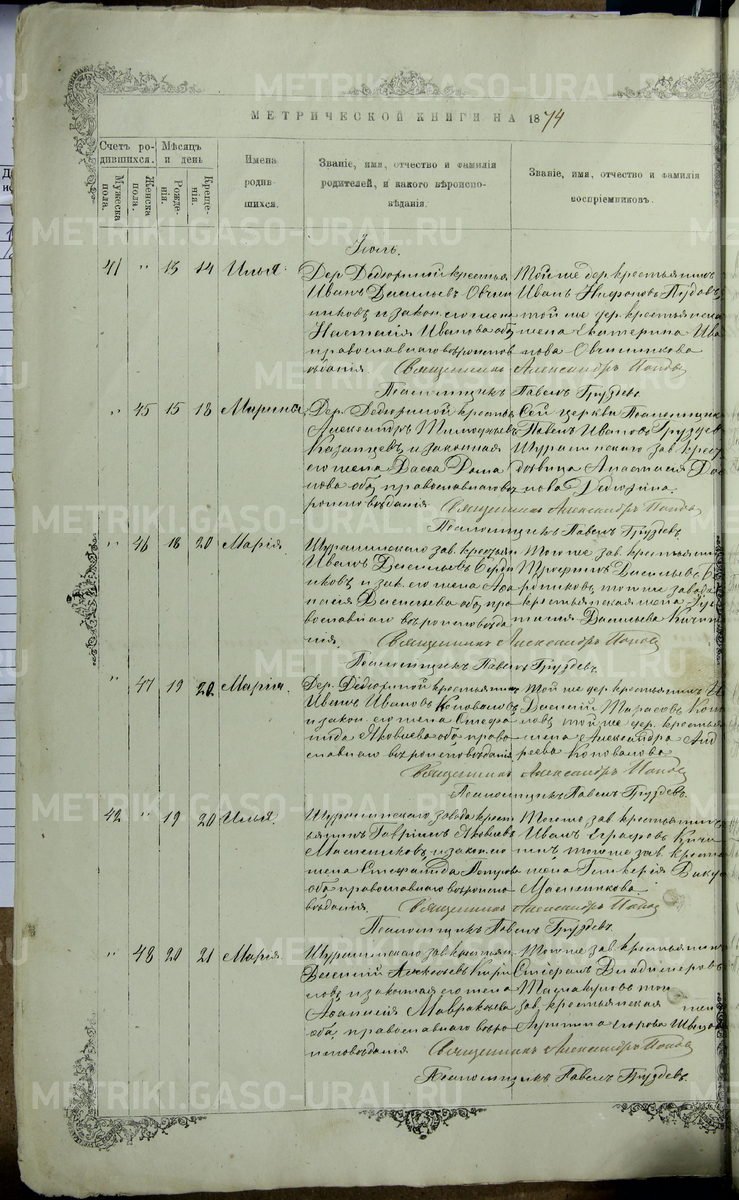 МЕТРИЧЕСКОЙ КНИГИ НА 1874
Счетъ ро-
дившихся.
Мѣсяцъ
и день
Мужеска
пола.
Женска
пола.
Рожде-
нія.
Креще-
нія.
Имена
родив-
шихся.
Званіе, имя, отчество и фамилія
родителей, и какого вѣроиспо-
вѣданія.
Званіе, имя, отчество и фамилія
воспріемниковъ.
Іюль.
41 " 13 14 Илья.
Дер. Дедюхиной крестья
Иванъ Васильевъ Овчин
никовъ и закон. его жена
Настасія Иванова оба
православнаго вѣроиспов
ѣданія.
Той же дер. крестьянинъ
Иванъ
той же дер. крестьянска
жена Екатерина Ива
нова Овчинникова
Священникъ Александръ Попов
Псаломщикъ Павелъ Груздевъ.
" 45 15 18 Марина.
Дер. Дедюхиной крестья
Александръ Тимофеевъ
Казанцевъ и законная
его жена Васса
нова оба православнаго вѣ
роисповѣданія
Сей церкви Псаломщикъ
Павелъ Ивановъ Груздев
Шуралинскаго зав. крест
дѣвица Анастасія
нова Дедюхина.
Священникъ Александръ Попов
Псаломщикъ Павелъ Груздевъ.
" 46 18 20 Марія.
Шуралинскаго зав. крестьян
Иванъ Васильевъ
никовъ и зак. его жена
Васильева оба пра
вославнаго вѣроисповѣда
нія.
Того же зав. крестьянинъ
Трофимъ Васильевъ
того же завода
крестьянская жена
Васильева
Священникъ Александръ Попов
Псаломщикъ Павелъ Груздевъ.
" 47 19 20 Марія.
Дер. Дедюхиной крестьянинъ
Иванъ Ивановъ Коноваловъ
и закон. его жена Стефа
нида Яковлева оба право
славнаго вѣроисповѣданія
Той же дер. крестьянинъ
Василій Тарасовъ
той же дер. крестья
жена Александра Анд
реева Коновалова
Священникъ Александръ Попов
Псаломщикъ Павелъ Груздевъ.
42 " 19 20 Илья.
Шуралинскаго завода крест
ьянинъ Гавріилъ Яковлевъ
Маслениковъ и закон. его
жена Стефанида Петрова
оба православнаго вѣроиспо
вѣданія.
Того же зав. крестьянинъ
Иванъ
того же зав. крестья
жена Гликерія
Масленикова.
Священникъ Александръ Попов
Псаломщикъ Павелъ Груздевъ.
" 48 20 21 Марія.
Шуралинскаго зав. крестьян.
Василій Алексѣевъ Кири
ловъ и законная его жена
Афанасія
оба православнаго вѣро
исповѣданія.
Того же зав. крестьянинъ
Стефанъ Владимеровъ
того
зав. крестьянская жен
Егорова
Священникъ Александръ Попов
Псаломщикъ Павелъ Груздевъ.
METRIKI.GASO-URAL.RU